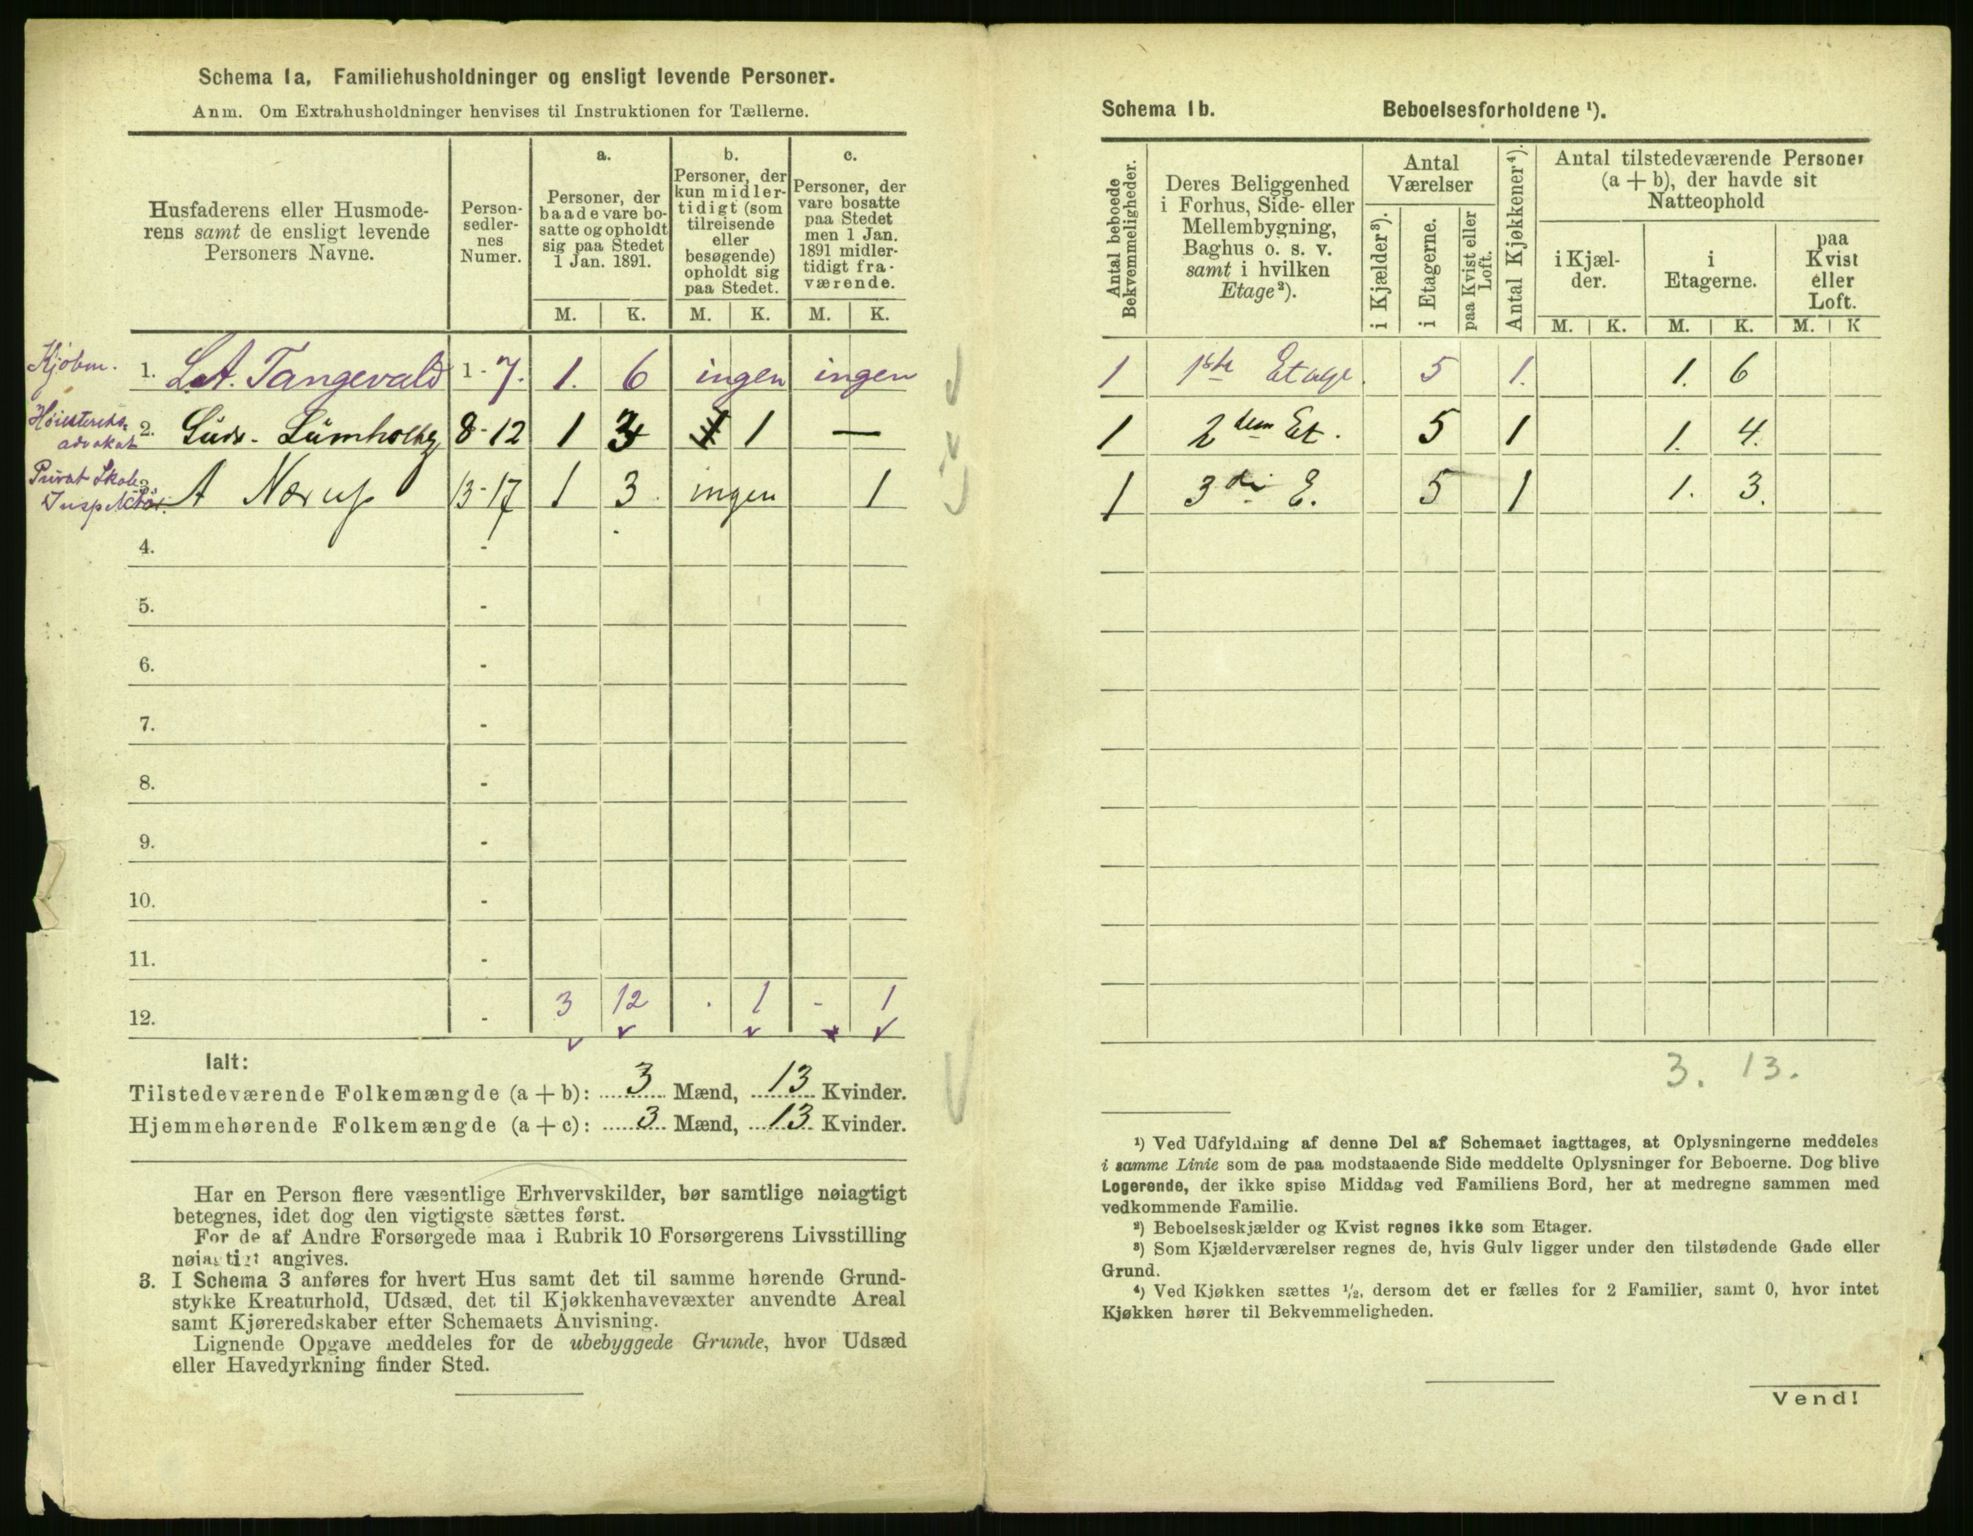 Schema 1a. Familiehusholdninger og ensligt levende Personer.
Anm. Om Extrahusholdninger henvises til Instruktionen for Tællerne.
Husfaderens eller Husmode-
rens samt de ensligt levende
Personers Navne.
Person-
sedler-
nes
Numer.
a.
Personer, der
baade vare bo-
satte og opholdt
sig paa Stedet
1 Jan. 1891.
b.
Personer, der
kun midler-
tidigt (som
tilreisende
eller
besøgende)
opholdt sig
paa Stedet.
c.
Personer, der
vare bosatte
paa Stedet
men 1 Jan.
1891 midler-
tidigt fra-
værende.
M. K. M. K. M. K.
Kjøbm. 1. L.A. Tangevald 1-7. 1. 6 ingen ingen
Høiesterets-
advokat 2. 8-12 1 3 1 —
Privat Skole
Inspektør. A Nærup 13-17 1 3. ingen 1
4. -
5. -
6. -
7. -
8. -
9. -
10. -
11. -
12. - 3 12 . 1 - 1
Ialt:
Tilstedeværende Folkemængde (a + b): 3 Mænd, 13 Kvinder.
Hjemmehørende Folkemængde (a + c): 3 Mænd, 13 Kvinder.
Har en Person flere væsentlige Erhvervskilder, bør samtlige nøiagtigt
betegnes, idet dog den vigtigste sættes først.
For de af Andre Forsørgede maa i Rubrik 10 Forsørgerens Livsstilling
nøiagtigt angives.
3. I Schema 3 anføres for hvert Hus samt det til samme hørende Grund-
stykke Kreaturhold, Udsæd, det til Kjøkkenhavevæxter anvendte Areal
samt Kjøreredskaber efter Schemaets Anvisning.
Lignende Opgave meddeles for de ubebyggede Grunde, hvor Udsæd
eller Havedyrkning finder Sted.
Schema 1b. Beboelsesforholdene ¹).
Antal beboede
Bekvemmeligheder.
Deres Beliggenhed
i Forhus, Side- eller
Mellembygning,
Baghus o. s. v.
samt i hvilken
Etage²).
Antal
Værelser
i Kjælder³).
i Etagerne.
paa Kvist eller
Loft.
Antal Kjøkkener⁴).
Antal tilstedeværende Personer
(a + b), der havde sit
Natteophold
i Kjæl-
der.
i
Etagerne.
paa
Kvist
eller
Loft.
M. K. M. K. M. K
1 1ste Etage. 5 1. 1. 6
1 2den Et. 5 1 1. 4.
1 3die E. 5 1 1. 3.
3. 13.
¹) Ved Udfyldning af denne Del af Schemaet iagttages, at Oplysningerne meddeles
i samme Linie som de paa modstaaende Side meddelte Oplysninger for Beboerne. Dog blive
Logerende, der ikke spise Middag ved Familiens Bord, her at medregne sammen med
vedkommende Familie.
²) Beboelseskjælder og Kvist regnes ikke som Etager.
³) Som Kjælderværelser regnes de, hvis Gulv ligger under den tilstødende Gade eller
Grund.
⁴) Ved Kjøkken sættes ½, dersom det er fælles for 2 Familier, samt 0, hvor intet
Kjøkken hører til Bekvemmeligheden.
Vend!